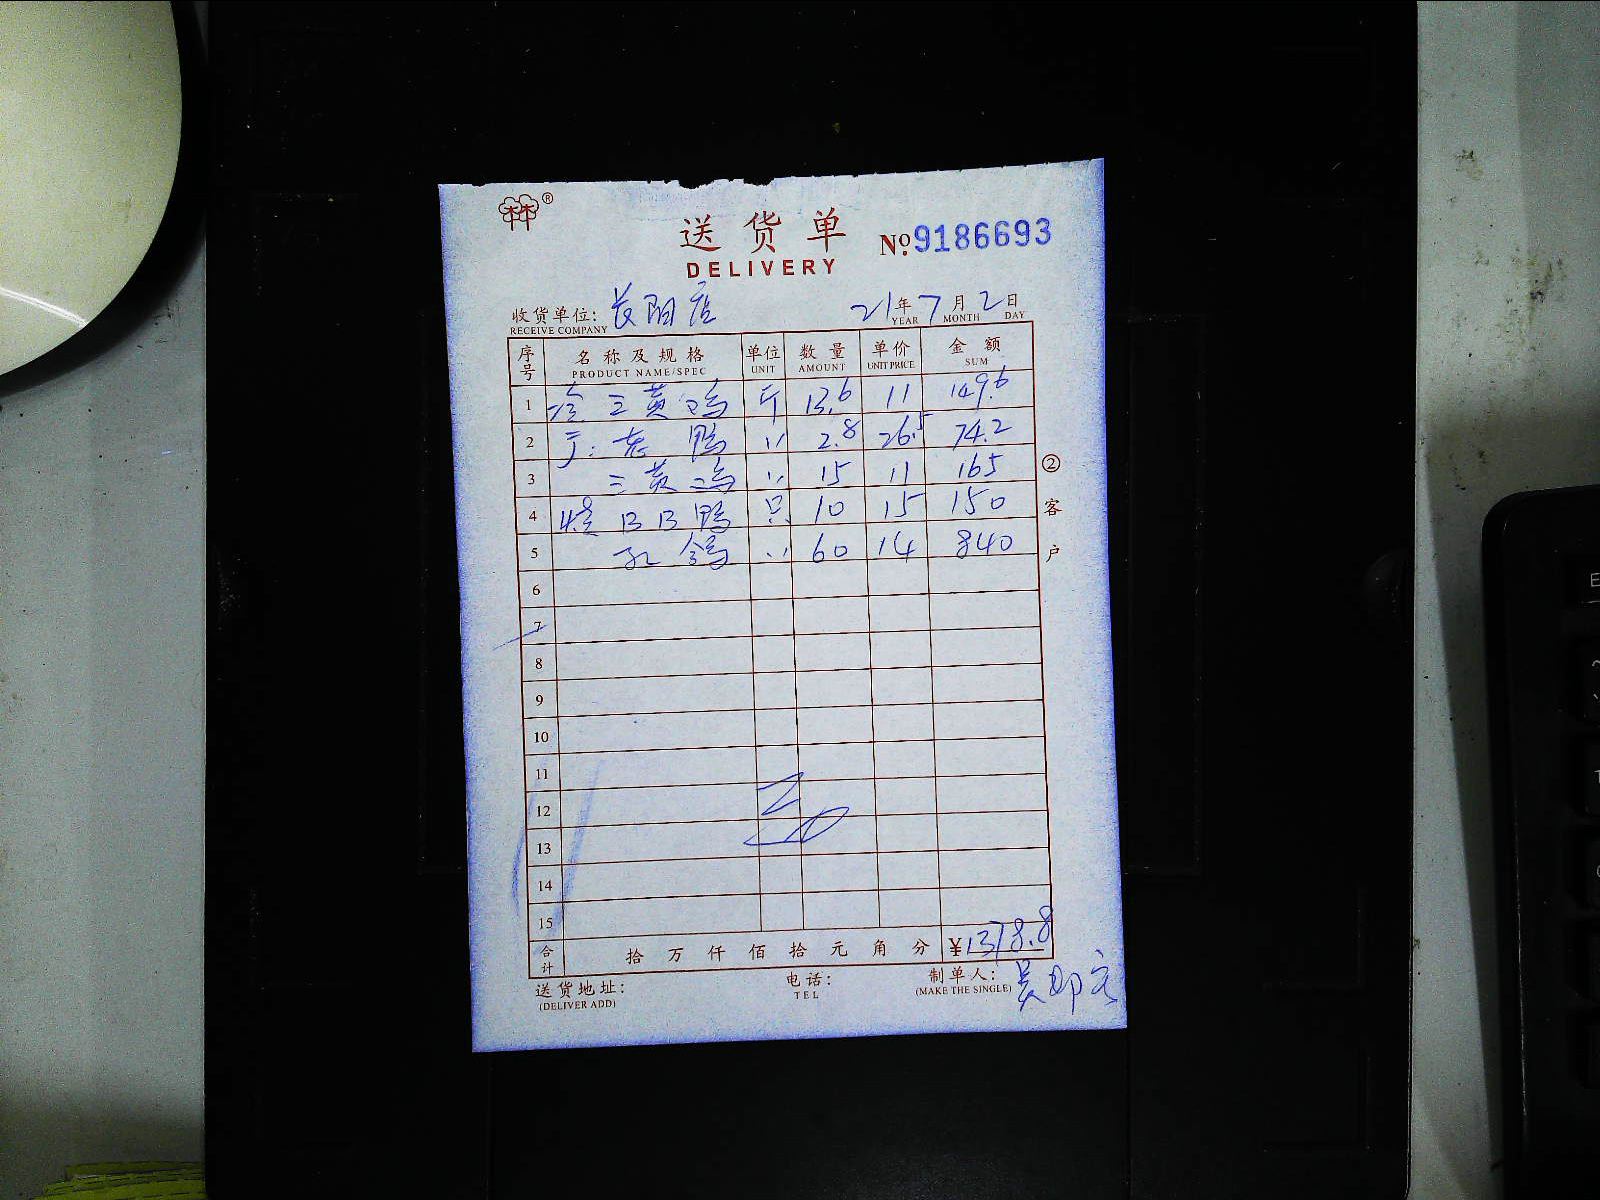 林®
送货单 №9186693
DELIVERY
收货单位: 长阳店 21年7月2日
RECEIVE COMPANY YEAR MONTH DAY
序号 名称及规格 单位 数量 单价 金额
PRODUCT NAME/SPEC UNIT AMOUNT UNIT PRICE SUM
1 三黄鸡 斤 13.6 11 149.6
2 老鸭 〃 2.8 26.5 74.2
3 三黄鸡 〃 15 11 165
4 鸭 只 10 15 150
5 乳鸽 〃 60 14 840
6
7
8
9
10
11
12
13
14
15
合计 拾万仟佰拾元角分 ¥1378.8
送货地址: 电话: 制单人:
(DELIVER ADD) TEL (MAKE THE SINGLE)
②客户